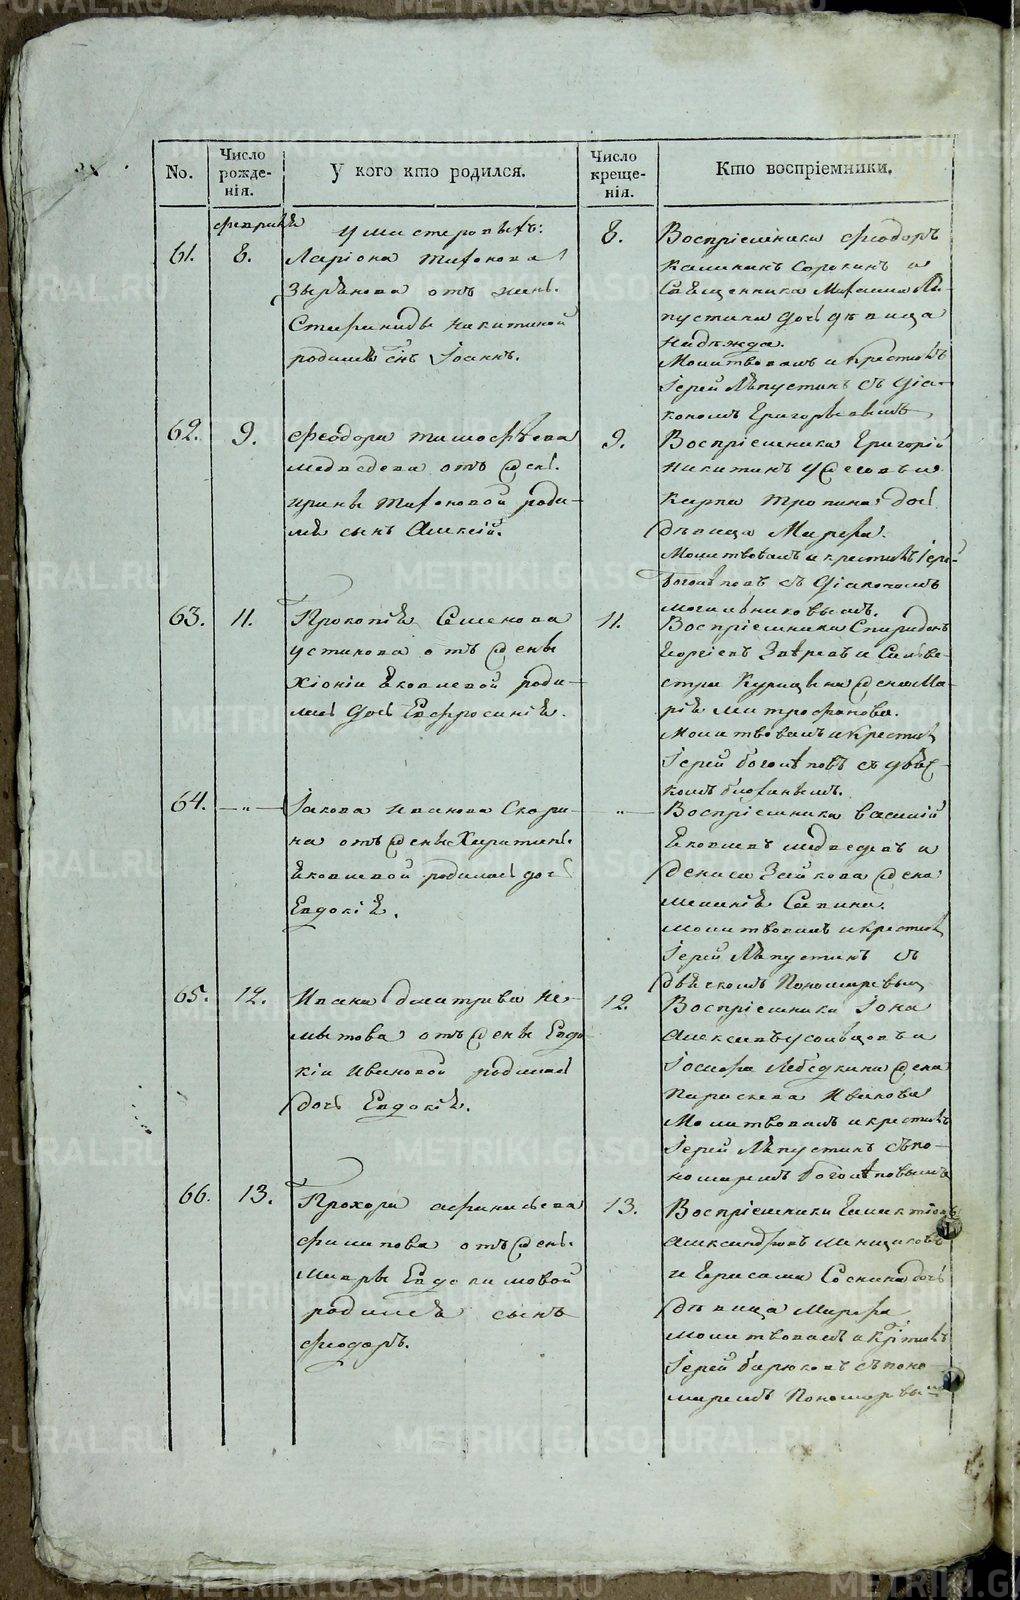 No.
Число рожде-нія.
У кого кто родился.
Число креще-нія.
Кто воспріемники.
февраля
У мастеровыхъ:
61.
8.
Ларіона Тихонова
Зырянова отъ жены
Стефаниды Никитиной
родился сынъ Іоаннъ.
8.
Воспріемники Феодоръ
Сорокинъ и
Священника Михаила Ла-
пустина дочь дѣвица
Надежда.
Молитвовалъ и Крестилъ
Іерей Лѣпустинъ съ діа-
кономъ Григорьевымъ
62.
9.
Феодора Тимофѣева
Медведева отъ жены
Ирины Тихоновой роди-
лся сынъ Алексій.
9.
Воспріемники Григорій
Никитинъ и
Карпа Тропина дочь
дѣвица Марфа.
Молитвовалъ и крестилъ Іере-
Боголѣповъ съ діакономъ
Могильниковымъ.
63.
11.
Прокопія Семенова
Устинова отъ жены
Хіоніи Яковлевой роди-
лась дочь Евфросинія.
11.
Воспріемники Спиридонъ
Звѣревъ и Сильве-
стра Курицына жена Ма-
рія Митрофанова.
Молитвовалъ и Крестилъ
Іерей Боголѣповъ съ дьяч-
комъ
64.
— „ —
Іакова Иванова Скори-
на отъ жены Харитины
Яковлевой родилась дочь
Евдокія.
„
Воспріемники Василій
Яковлевъ Медведевъ и
Дениса Зайкова жена
Меланія Савина.
Молитвовалъ и крестилъ
Іерей Лѣпустинъ съ
дьячкомъ Пономаревым
65.
12.
Ивана Дмитріева Не-
мытова отъ жены Евдо-
кіи Ивановой родилась
дочь Евдокія.
12.
Воспріемники Іона
Алексѣевъ и
Іосифа Лебедкина жена
Параскева Иванова
Молитвовалъ и крестилъ
Іерей Лѣпустинъ съ по-
номаремъ Боголѣповымъ
66.
13.
Прохора Афанасьева
Филипова отъ жены
Мавры Евдокимовой
родился сынъ
Феодоръ.
13.
Воспріемники Галактіонъ
Александровъ
и Герасима Соснина дочь
Дѣвица Марфа
Молитвовалъ и Крстилъ
Іерей Бирюковъ съ поно
маремъ Пономаревы
METRIKI.GASO-URAL.RU